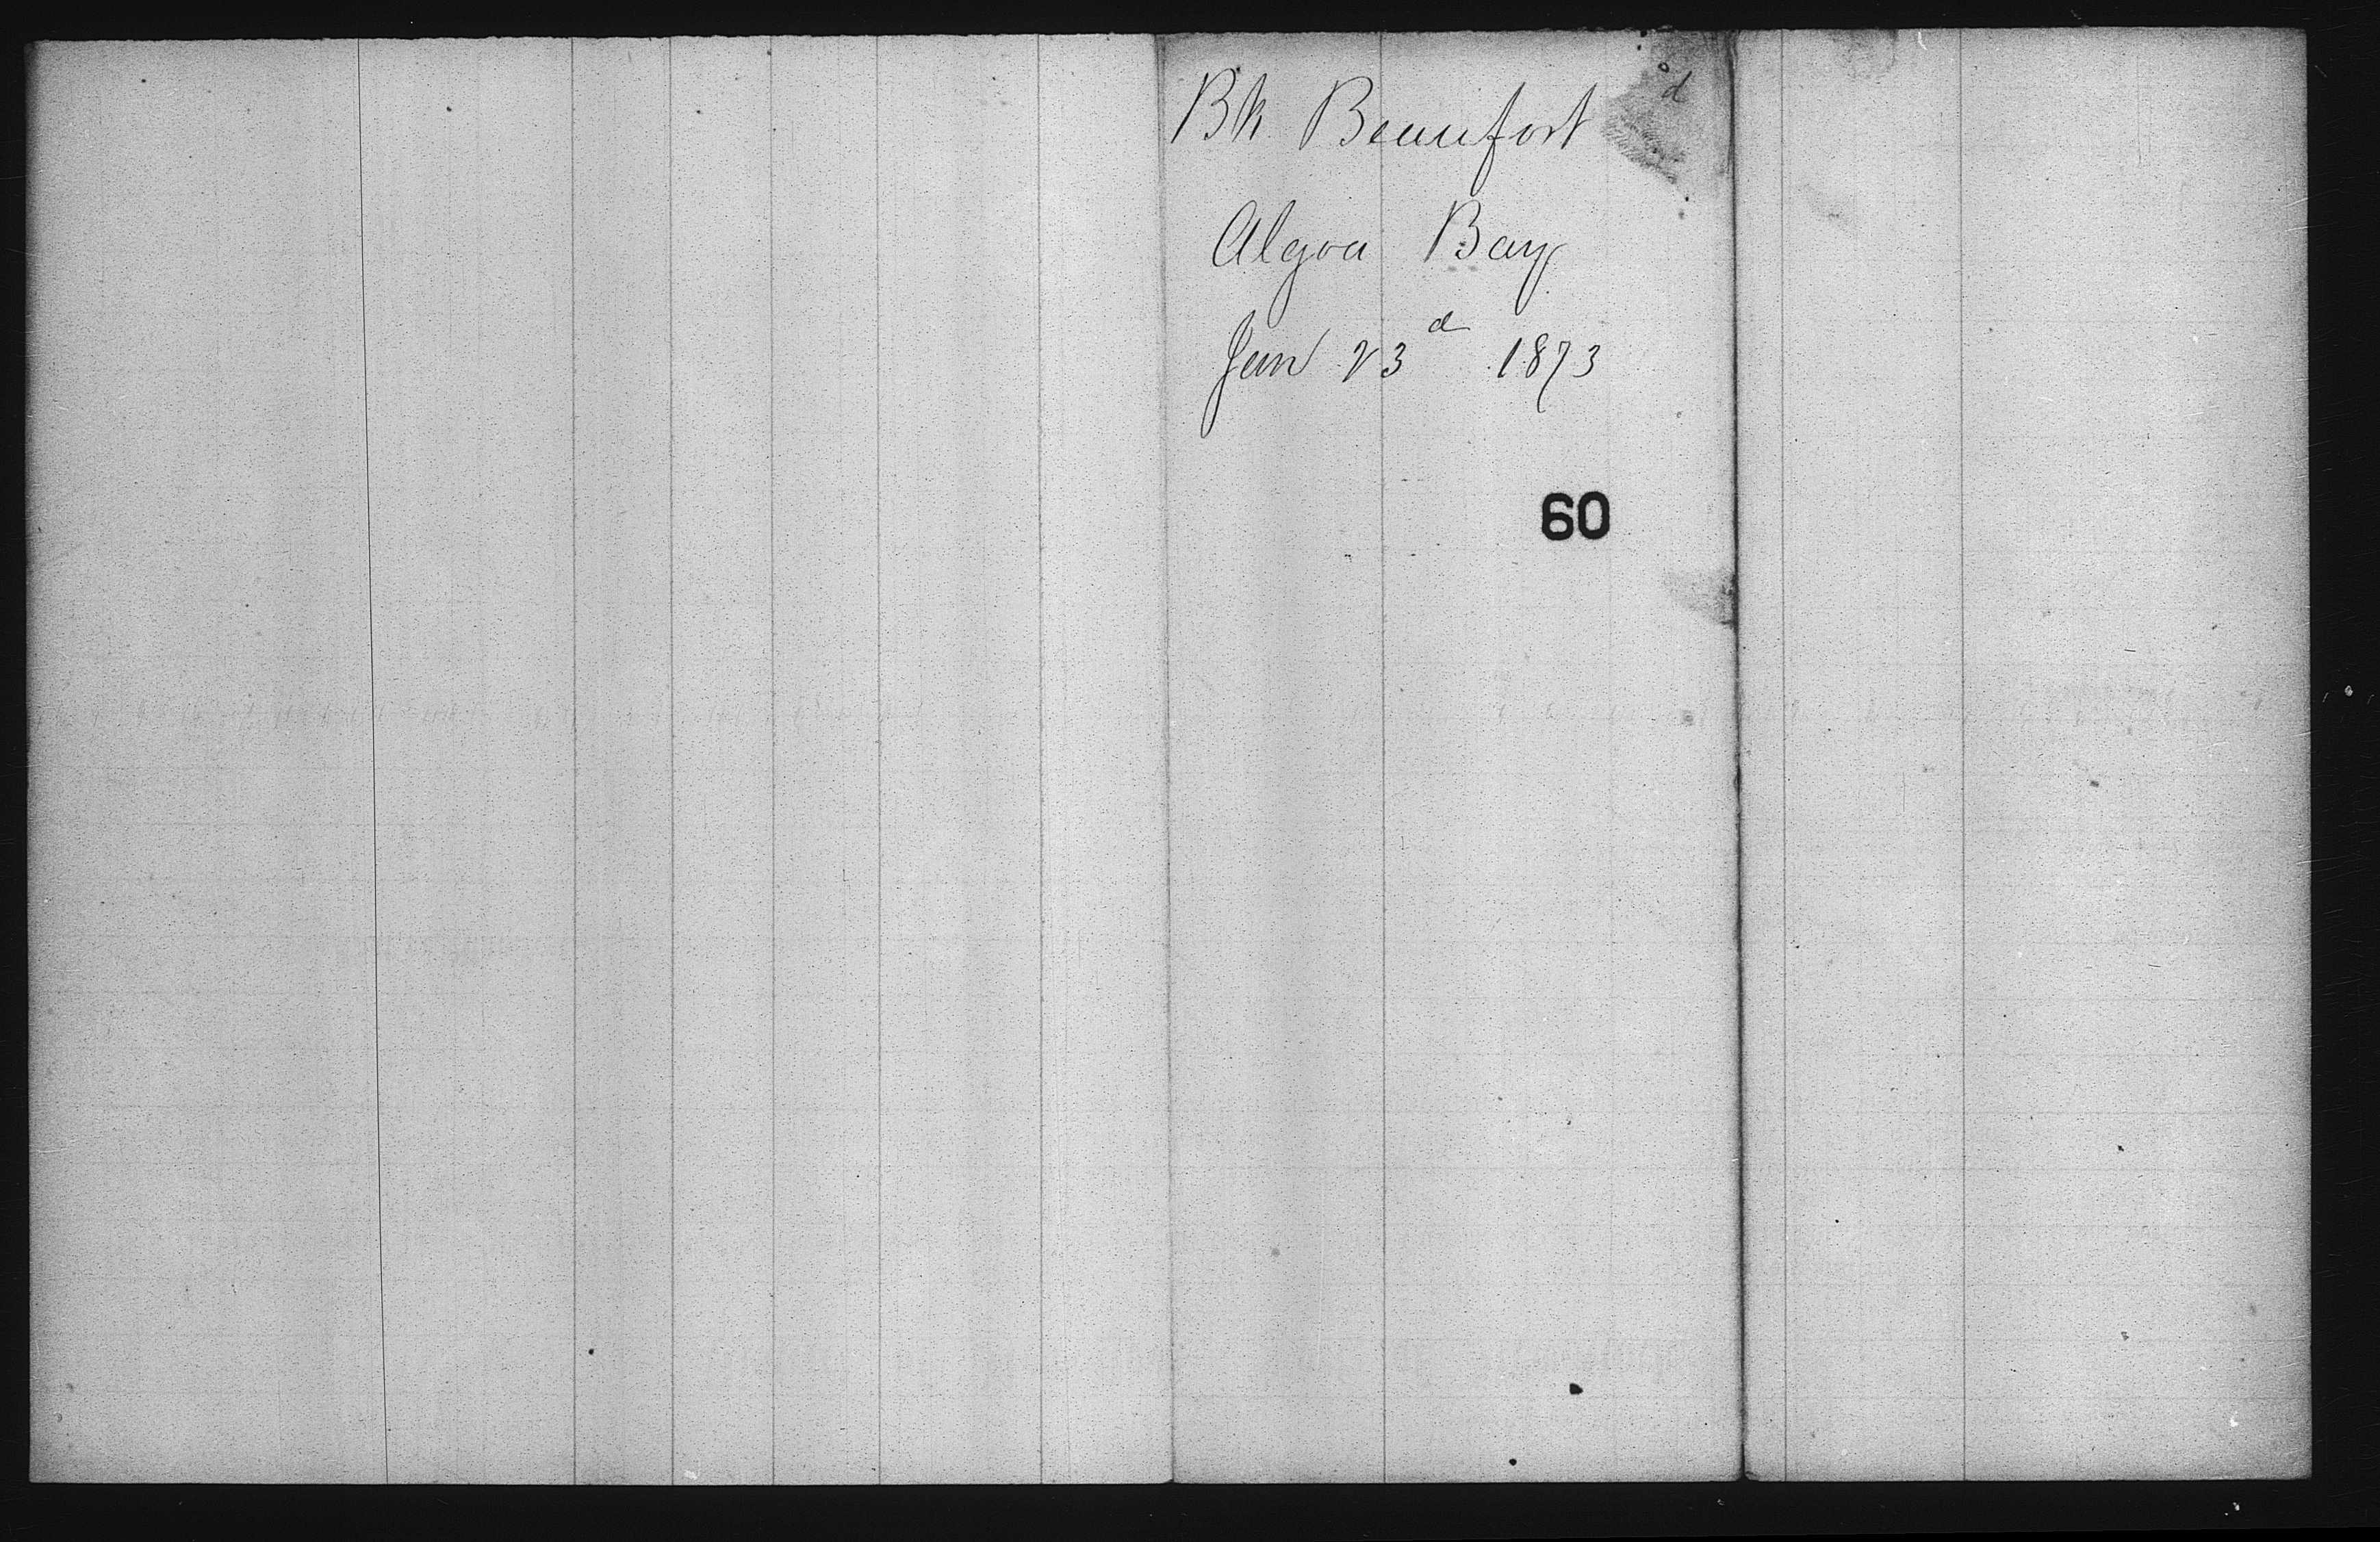 Bk Beaufort
Algoa Bay
Jan 23d 1873
60